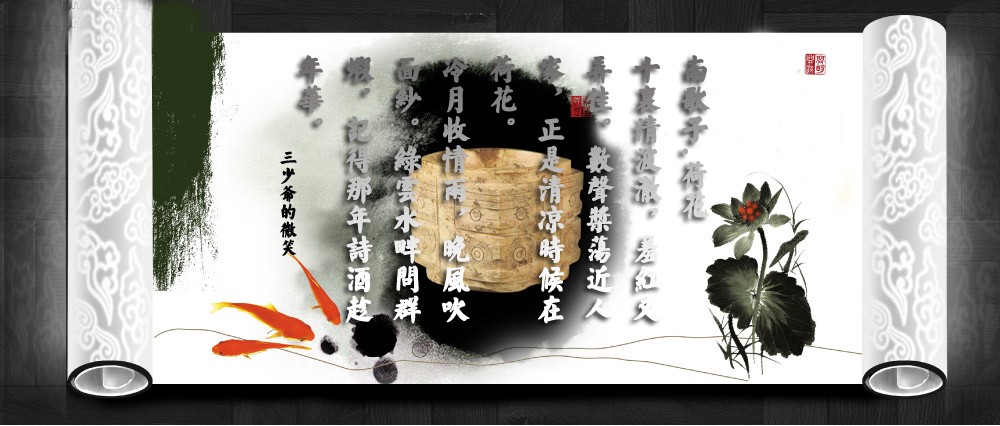 南歌子·荷花
十裏清波澈，羞紅又
弄佳。數聲槳蕩近人
家，正是清凉時候在
荷花。
冷月收情雨，晚風吹
面紗。綠雲水畔問群
蝦，記得那年詩酒趁
年華。
三少爺的微笑